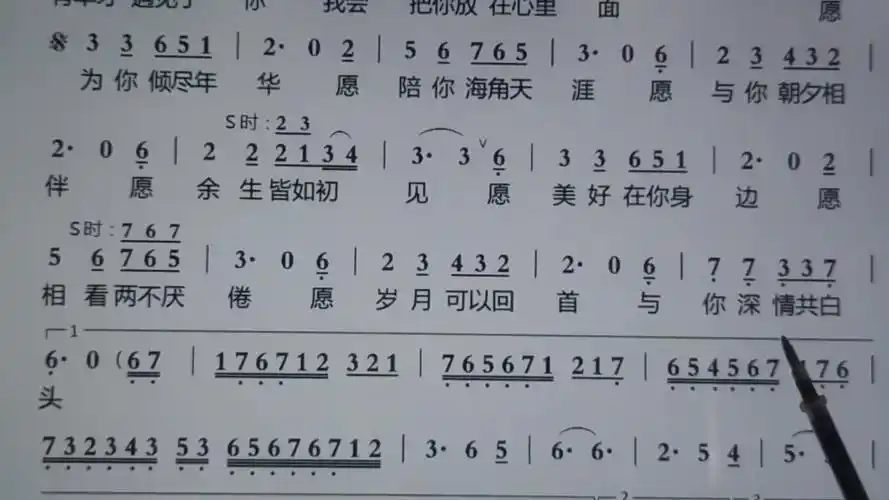 你 我会 把你放 在心里 面 愿
𝄋 3 3 651 | 2· 0 2 | 5 6 765 | 3· 0 6 | 2 3 432 |
为 你 倾尽年 华 愿 陪 你 海角天 涯 愿 与 你 朝夕相
S时:2 3
2· 0 6 | 2 2 2134 | 3· 3 V 6 | 3 3 651 | 2· 0 2 |
伴 愿 余 生 皆如初 见 愿 美 好 在你身 边 愿
S时:7 6 7
5 6 765 | 3· 0 6 | 2 3 432 | 2· 0 6 | 7 7 337 |
相 看 两不厌 倦 愿 岁 月 可以回 首 与 你 深 情共白
1
6· 0 (67 | 176712 321 | 765671 217 | 654567 176 |
头
732343 53 65676712 | 3· 6 5 | 6· 6· | 2· 5 4 | 5·
2 3